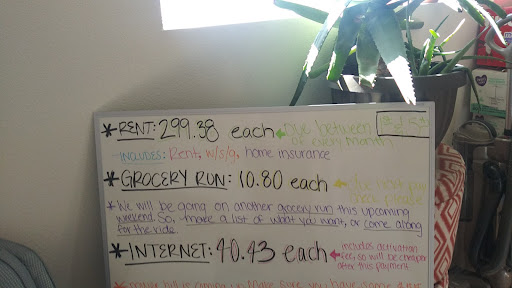 *RENT: 299.38 each ← Due between
of every month
INCLUDES: Rent, w/s/g, home insurance
*GROCERY RUN: 10.80 each ←
please
* We will be going on another grocery run this upcoming
weekend. So, make a list of what you want, or come along
for the ride.
*INTERNET: 40.43 each ← includes activation
fee, so will be cheaper
after this payment
bill is coming up. Make sure you have